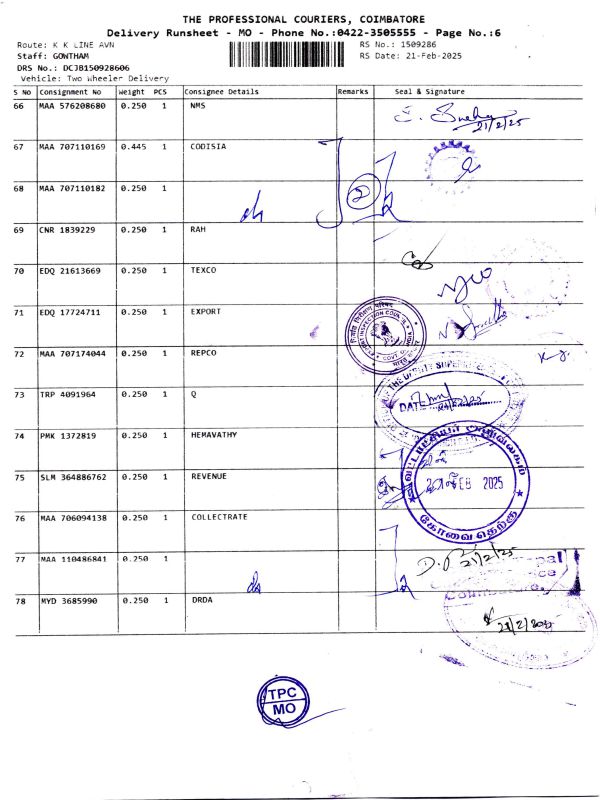 THE PROFESSIONAL COURIERS, COIMBATORE
Delivery Runsheet - MO - Phone No.:0422-3505555 - Page No.:6
Route: K K LINE AVN
RS No.: 1509286
Staff: GOWTHAM
RS Date: 21-Feb-2025
DRS No.: DCJB150928606
Vehicle: Two Wheeler Delivery
S No Consignment No Weight PCS Consignee Details Remarks Seal & Signature
66 MAA 576208680 0.250 1 NMS
21/2/25
67 MAA 707110169 0.445 1 CODISIA
68 MAA 707110182 0.250 1
2
69 CNR 1839229 0.250 1 RAH
70 EDQ 21613669 0.250 1 TEXCO
71 EDQ 17724711 0.250 1 EXPORT
72 MAA 707174044 0.250 1 REPCO
73 TRP 4091964 0.250 1 Q
DATE
74 PMK 1372819 0.250 1 HEMAVATHY
75 SLM 364886762 0.250 1 REVENUE
FEB 2025
கோவை தெற்கு
76 MAA 706094138 0.250 1 COLLECTRATE
77 MAA 110486841 0.250 1
21/2/25
Coimbatore
78 MYD 3685990 0.250 1 DRDA
TPC
MO